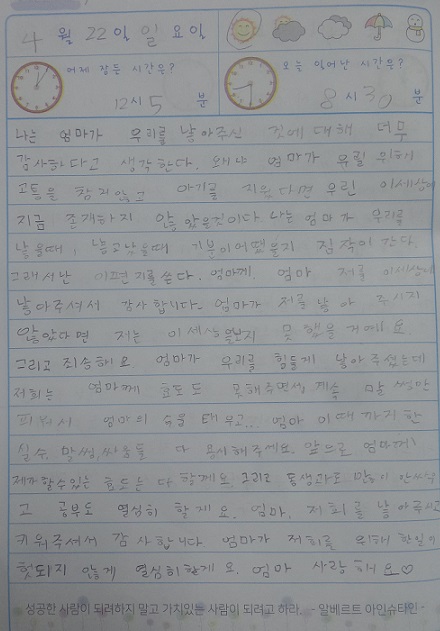 4월 22일 일요일
어제 잠든 시간은?
12시 5분
오늘 일어난 시간은?
8시 30분
나는 엄마가 우리를 낳아주신 것에 대해 너무
감사하다고 생각한다. 왜냐 엄마가 우릴 위해
고통을 참지않고 아기를 지운다면 우린 이세상에
지금 존재하지 안았을것이다. 나는 엄마가 우리를
낳을때, 낳고났을때 기분이어땠을지 짐작이 간다.
그래서난 이편지를 쓴다. 엄마께, 엄마 저를 이세상에
낳아주셔서 감사합니다. 엄마가 저를 낳아 주시지
않았다면 저는 이세상 못했을거에요.
그리고 죄송해요 엄마가 우리를 힘들게 낳아주셨는데
저희는 엄마께 효도도 못해주면서, 계속 말썽만
피워서 엄마의 속을 태우고.. 엄마 이때까지 한
실수, 말썽, 싸움들 다 용서해주세요. 앞으로 엄마께
제가할수있는 효도는 다 할게요. 그리고 동생과도 많이 안싸우
고 공부도 열심히 할게요. 엄마, 저희를 낳아주시고
키워주셔서 감사합니다 엄마가 저희를 위해 한일이
헛되지 않게 열심히할게요. 엄마 사랑해요♡
성공한 사람이 되려하지 말고 가치있는 사람이 되려고 하라. - 알베르트 아인슈타인 -